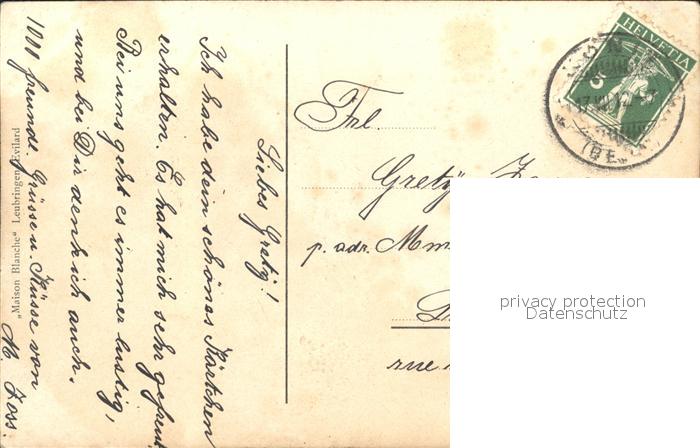 Liebes Gretÿ!
Ich habe dein schönes Kärtchen
erhalten. Es hat mich sehr gefreut
Bei uns geht es immer lustig,
und bei Dir denk ich auch.
1000 freundl. Grüsse u. Küsse von
M. Zoss.
"Maison Blanche" Leubringen-Evilard
Frl.
Gretÿ
p. adr. Mm
rue
HELVETIA
5
(BE
privacy protection
Datenschutz